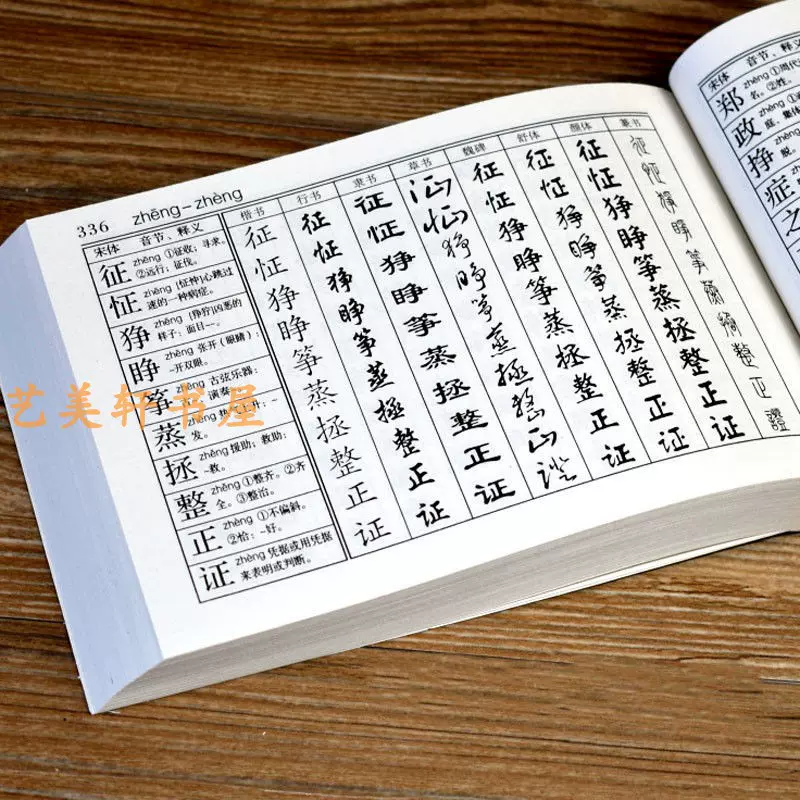 336 zhēng–zhèng
宋体 音节、释义 楷书 行书 隶书 草书 魏碑 舒体 颜体 篆书
征 zhēng ①征收;寻求。 征 征 征 征 征 征 征 征
②远行;征伐。
怔 zhēng [怔忡]心跳过 怔 怔 怔 怔 怔 怔 怔 怔
速的一种病症。
狰 zhēng [狰狞]凶恶的 狰 狰 狰 狰 狰 狰 狰 狰
样子:面目~。
睁 zhēng 张开(眼睛): 睁 睁 睁 睁 睁 睁 睁 睁
~开双眼。
筝 zhēng 古弦乐器: 筝 筝 筝 筝 筝 筝 筝 筝
演奏
蒸 zhēng 热气上升:~ 蒸 蒸 蒸 蒸 蒸 蒸 蒸 蒸
发。
拯 zhěng 援助;救助: 拯 拯 拯 拯 拯 拯 拯 拯
~救。
整 zhěng ①整齐。②齐 整 整 整 整 整 整 整 整
全。③整治。
正 zhèng ①不偏斜。 正 正 正 正 正 正 正 正
②恰:~好。
证 zhèng 凭据或用凭据 证 证 证 证 证 证 证 證
来表明或判断。
艺美轩书屋
宋体 音节、释义
郑 zhèng ①周代
名。②姓。
政 zhèng
庭、集体
挣 zhèng
脱。
症 zhèng
之